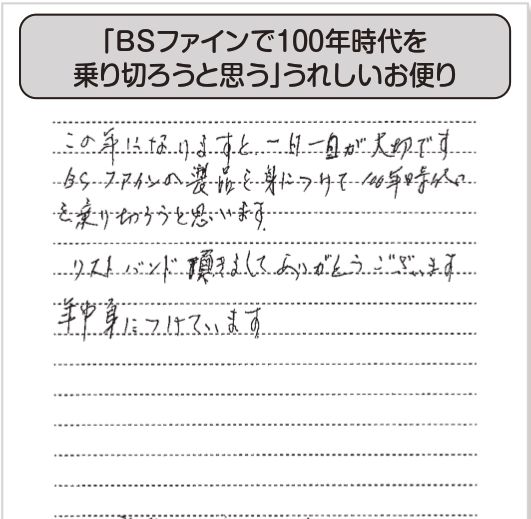 「BSファインで100年時代を
乗り切ろうと思う」うれしいお便り
この年になりますと、一日一日が大切です
BSファインの製品を身につけて100年時代
を乗り切ろうと思います。
リストバンド頂きましてありがとうございます
年中身につけています